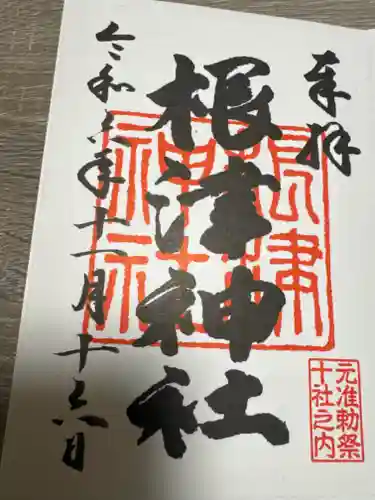 奉拝
根津神社
根津
神社
元准勅祭
十社之内
令和六年十一月十六日